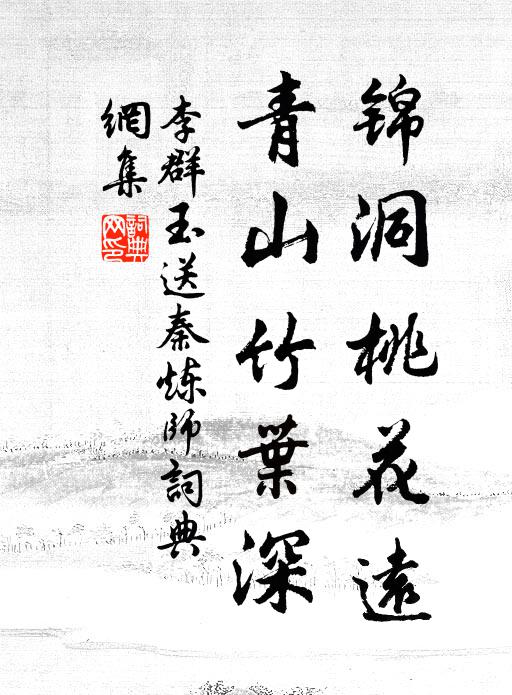 锦洞桃花遠
青山竹葉深
李群玉送秦炼師詞典
網集
詞典
网印